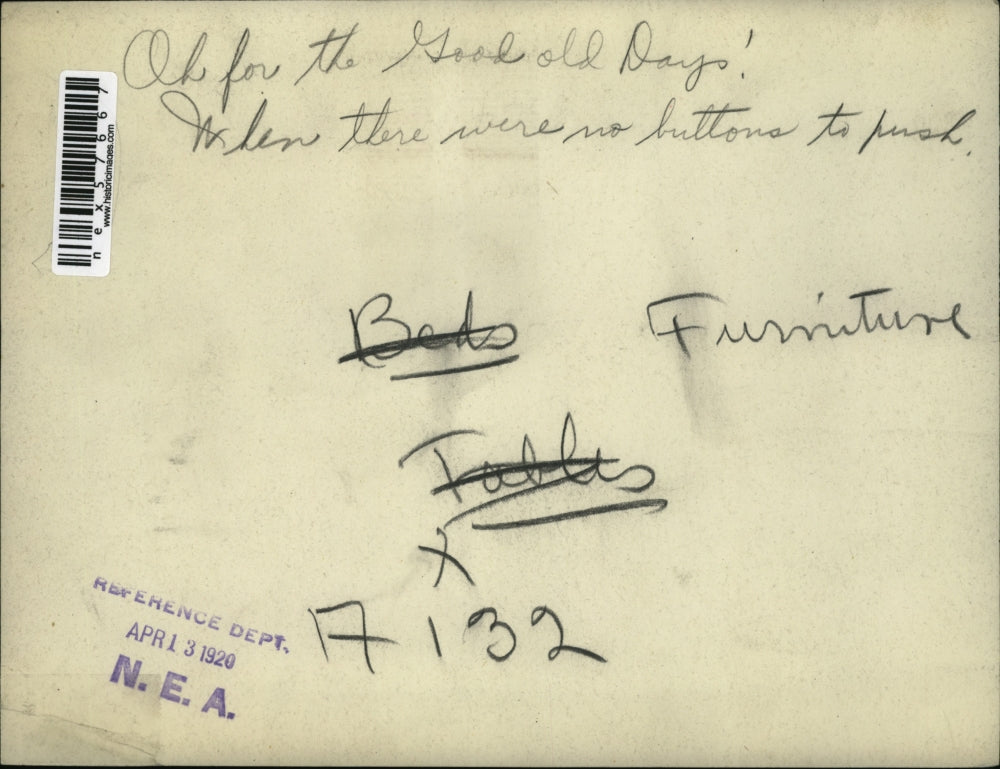 Oh for the Good old Days!
When there were no buttons to push.
nex57667
www.historicimages.com
Beds
Furniture
Tables
X
A 132
REFERENCE DEPT.
APR 13 1920
N. E. A.